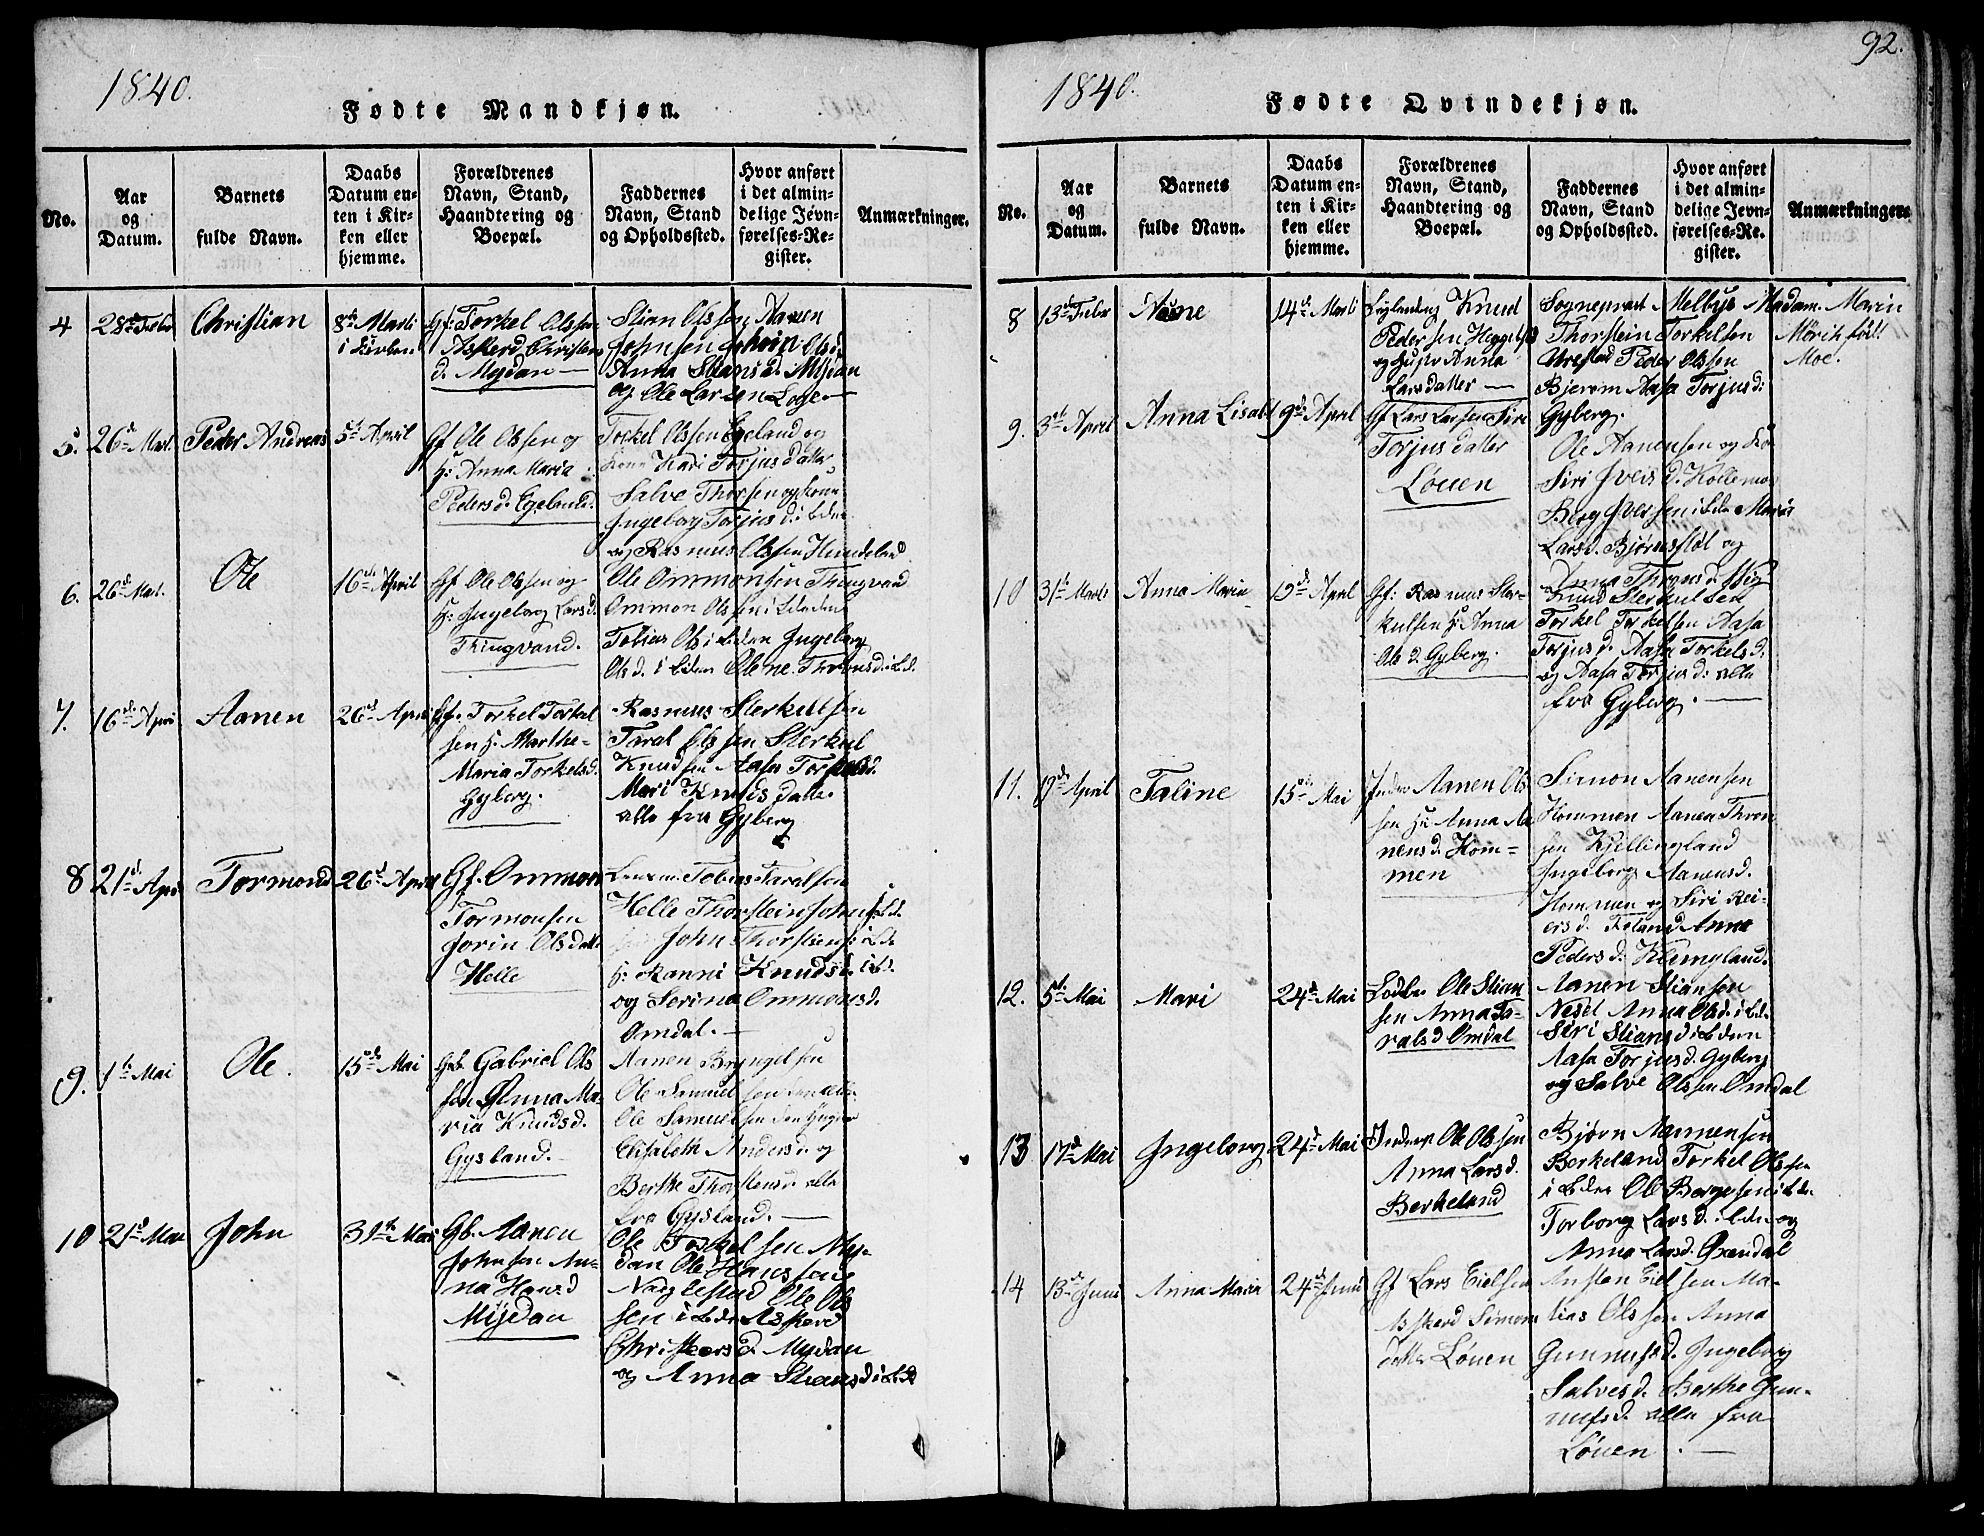 1840.
Fødte Mandkjøn.
No.
Aar
og
Datum.
Barnets
fulde Navn.
Daabs
Datum en-
ten i Kir-
ken eller
hjemme.
Forældrenes
Navn, Stand,
Haandtering og
Boepæl.
Faddernes
Navn, Stand
og Opholdssted.
Hvor anført
i det almin-
delige Jevn-
førelses-Re-
gister.
Anmærkninger.
4
28de Febr
Christian
8de Marti
i Kirken
Gf: Torkel Olssen
Askerd Christens
d. Mydan
Stian Olssen Aanen
Johnsen Ols
Anna Stians d. Mydan
og Ole Larsen Loge
5.
26de Mart.
Peder Andreas
5te April
Gf Ole Olsen og
H: Anna Maria
Peders d. Egeland.
Torkel Olssen Egeland og
Kone Kari Torjus datter
Salve Thorsen og Kone
Ingeborg Torjus d. i bden
og Rasmus Olssen Hundeland
6.
26de Mart.
Ole
16de April
Gf Ole Olssen og
H: Ingeborg Lars d.
Tingvand.
Ole Ommonsen Tingvand
Ommon Olssen i bden
Tobias Ols i bden Ingeborg
Ols d. i bden Olene Throns d. i bd.
7.
16de April
Aanen
26de April
Gf. Torkel Torkel
sen H: Marthe
Maria Torkels d.
Gyberg.
Rasmus Sterkulsen
Taral Olssen Sterkul
Knudsen Aasa Torjus d.
Mari Knuds datter
alle fra Gyberg
8
21de April
Tormond
26de April
Gf. Ommon
Tormonsen
Jorin Olsdatt
Helle
Tobias Taralsen
Helle Thorstein Johns i bd.
John Thorstens i bd
H: Ranni Knuds d. i bd.
og Serina Ommons d.
Omdal.
9.
1te Mai
Ole.
15de Mai
Gb. Gabriel Ols
sen Anna Ma-
ria Knuds d.
Gysland.
Aanen Bryngelsen
Ole Samuelsen den ældre
Ole Samuelsen den Yngre
Elisabeth Anders d. og
Berthe Thorstens d. alle
fra Gysland.
10
21de Mai
John
31te Mai
Gb. Aanen
Johnsen An-
na Hans d
Mydan
Ole Torkelsen My-
dan Ole Hanssen
Naglestad Ole Ols
sen i bden Askerd
Christens d Mydan
og Anna Stians d i bd
92.
1840.
Fødte Qvindekjøn.
No.
Aar
og
Datum.
Barnets
fulde Navn.
Daabs
Datum en-
ten i Kir-
ken eller
hjemme.
Forældrenes
Navn, Stand,
Haandtering og
Boepæl.
Faddernes
Navn, Stand
og Opholdssted.
Hvor anført
i det almin-
delige Jevn-
førelses-Re-
gister.
Anmærkninger.
8
13de Febr
14de Marti
Knud
Pedersen
og Anna
Larsdatter
Sogneprest Melbys Madam. Marin
Thorstein Torkelsen
Peder Olssen
Bjerom Aasa Torjus d:
Gyberg.
født
Moe.
9.
3de April
Anna Lisabt
9de April
Gf Lars Larsen Siri
Torjus datter
Løuen
Ole Aanensen og Ko
Siri Ivers d.
Berg Iversen i bden Maria
Lars d. Bjørnsfløt og
Anna Throns d. Mig
10
31te Marti
Anna Maria
19de April
Gf: Rasmus Ster-
kulsen H: Anna
Ole d. Gyberg.
Knud Sterkulsen
Torkel Torkelsen Aasa
Torjus d. Aasa Torkels d.
og Aasa Torjus d: alle
fra Gyberg.
11.
9de April
Taline
15de Mai
Inder. Aanen Ols
sen H: Anna Aa
nens d. Hom=
men
Simon Aanensen
Hommen Aanen Thron
sen Kjellingland
Ingeborg Aanens d.
Hommen og Siri Rei-
ers d. Feland Anna
Peders d. Klungland.
12.
5te Mai
Mari
24de Mai
Ole Stian
sen Anna Ta-
rals d Omdal
Aanen Stiansen
Nesel Anna Ols d. i bd.
Siri Stians d i bden
Aasa Torjus d. Gyberg
og Salve Olssen Omdal
13
17de Mai
Ingeborg
24de Mai
Inders Ole Olssen
Anna Lars d.
Berkeland
Bjørn Aanensen
Berkeland Torkel Olssen
i bden Ole Bergesen i bd.
Torborg Lars d. i bden og
Anna Lars d. Grendal
14
13de Juni
Anna Maria
24de Juni
Gf Lars Eielsen
Askerd Simons
datter Løuen
Ansten Eielsen Ma-
tias Olssen Anna
Gunnufs d. Ingeborg
Salves d. Berthe Gun-
nufs d. alle fra
Løuen.